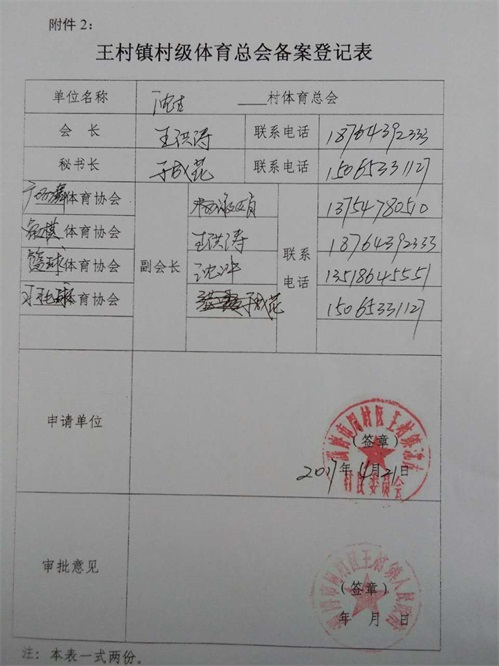 附件2：
王村镇村级体育总会备案登记表
单位名称 沈古 村体育总会
会 长 王洪涛 联系电话 18764392333
秘书长 于成花 联系电话 15065331127
体育协会 13754780510
象棋体育协会 王洪涛 18764392333
副会长 联系电话
篮球体育协会 13518645551
乒乓球体育协会 于成花 15065331127
申请单位
（签章）
2017年11月21日
村民委员会
审批意见
（签章）
年 月 日
注：本表一式两份。